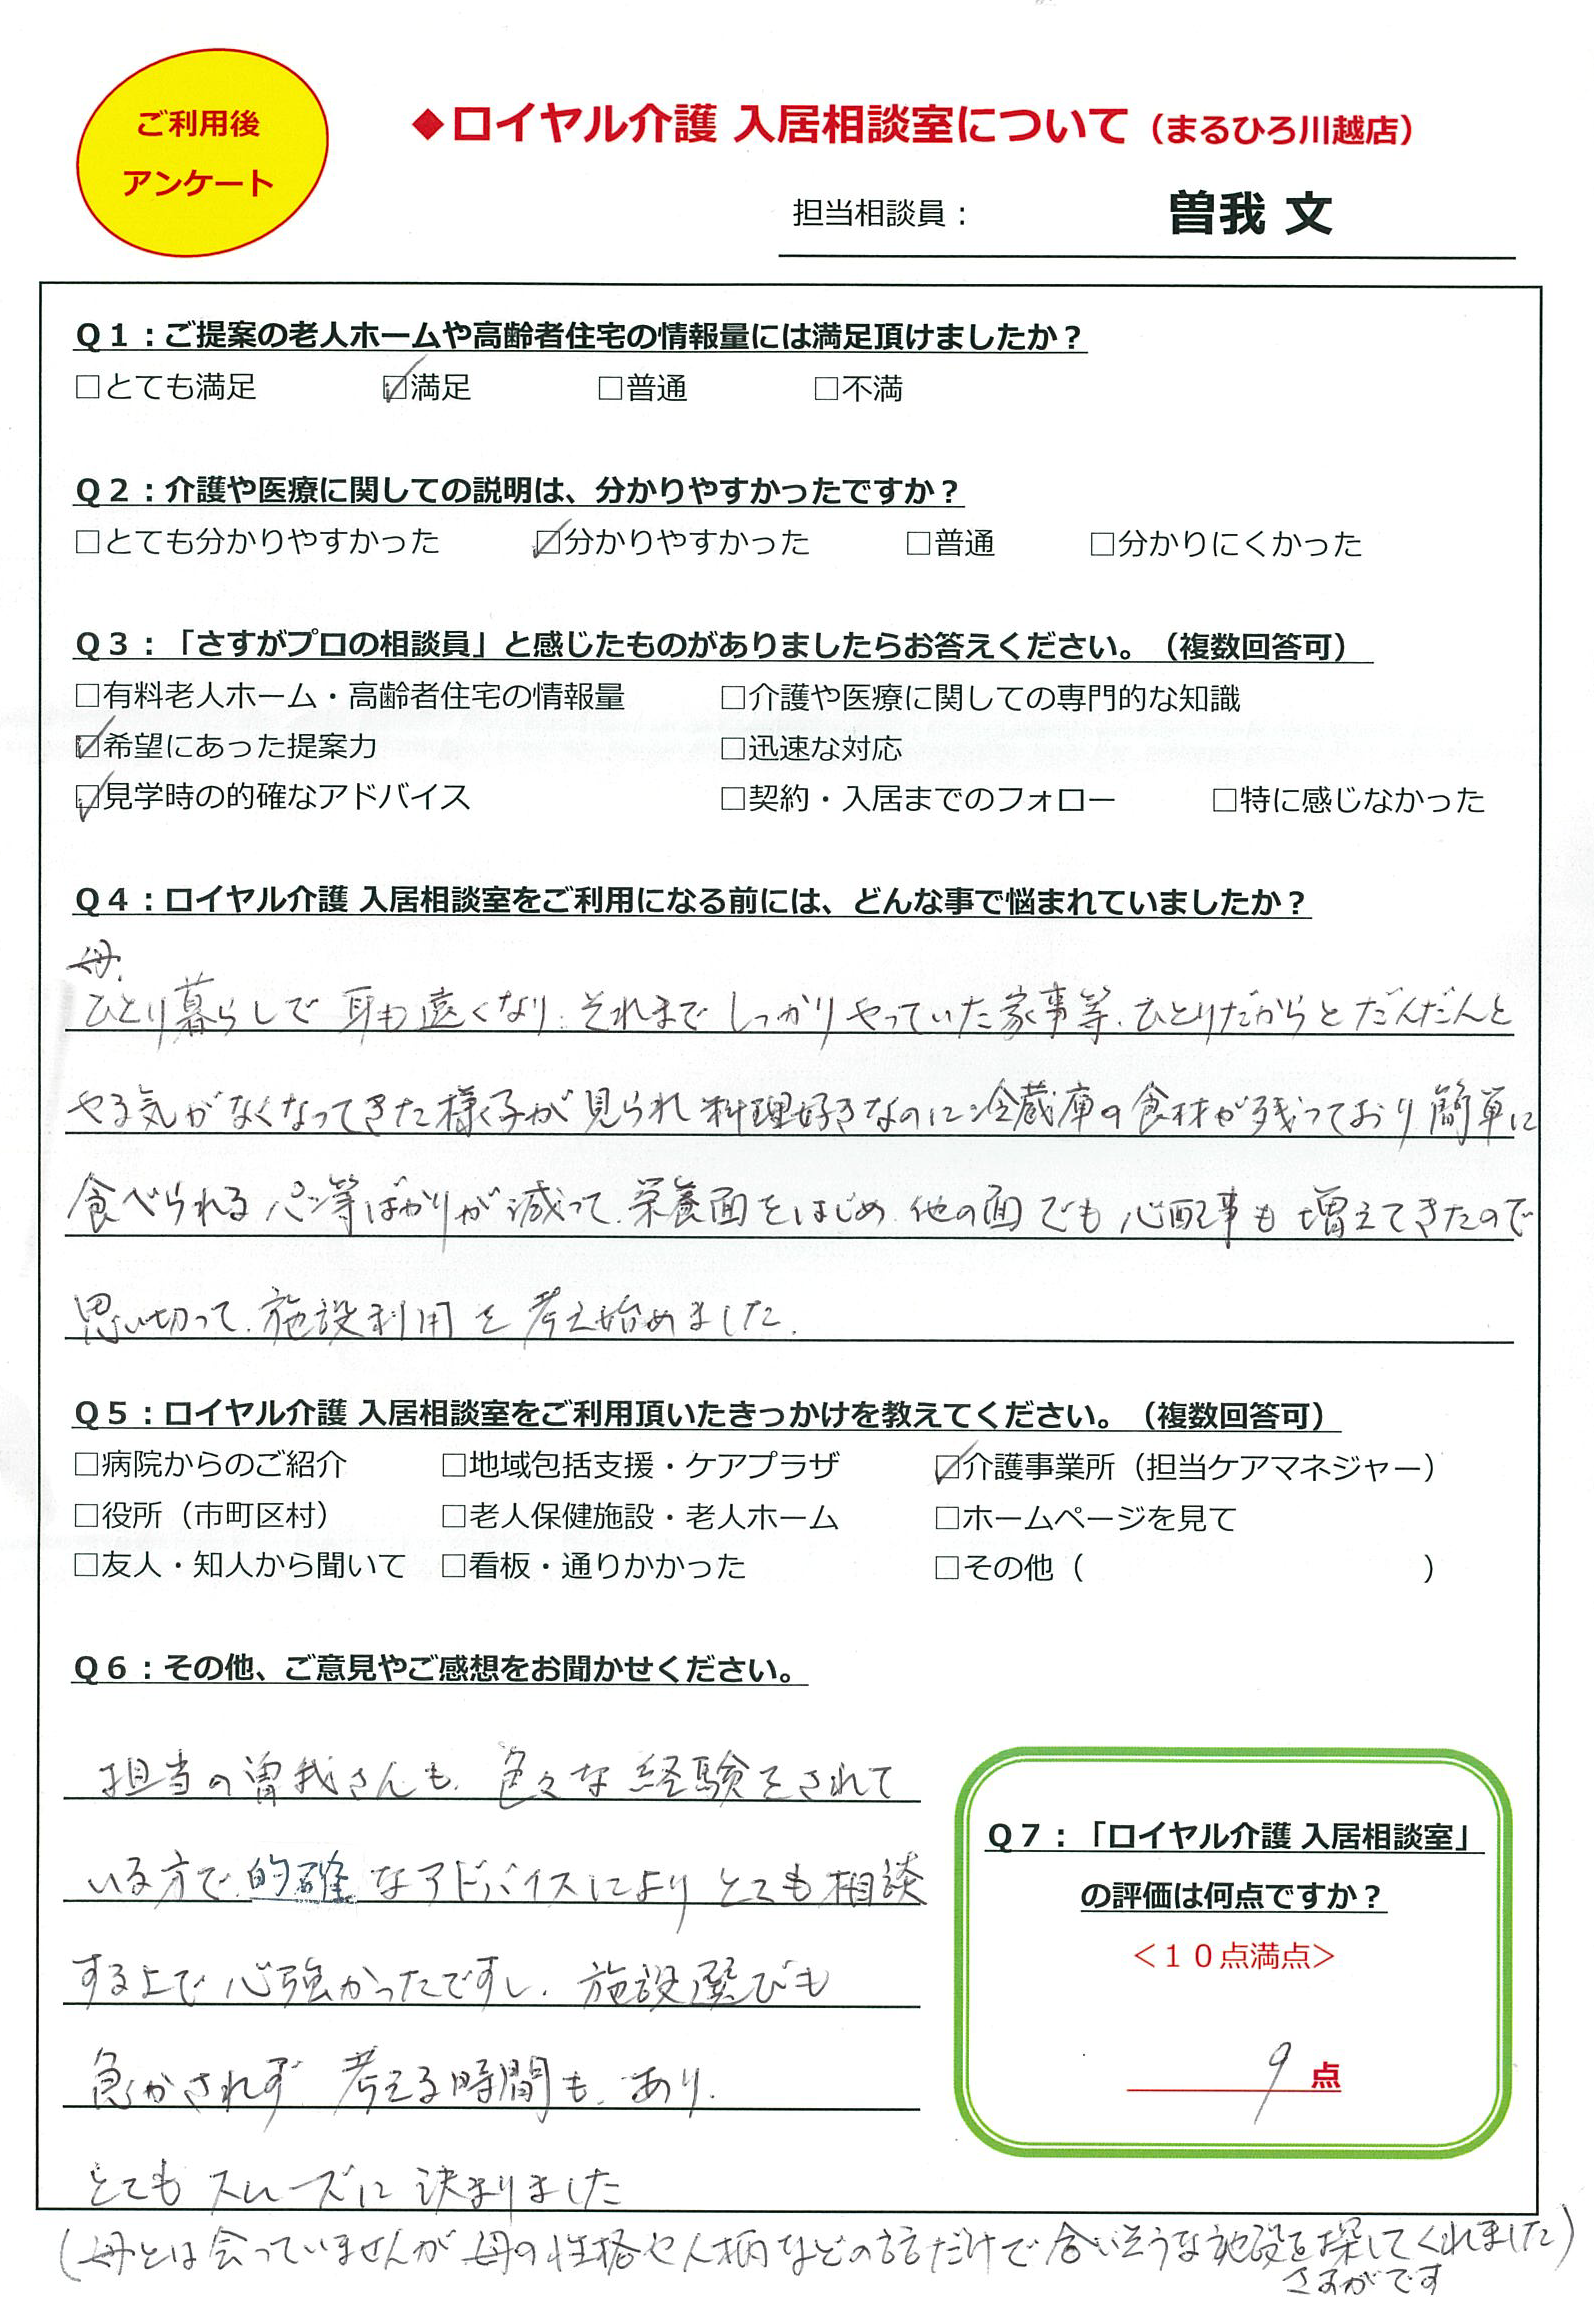 ご利用後
アンケート
◆ロイヤル介護 入居相談室について（まるひろ川越店）
担当相談員： 曽我 文
Q１：ご提案の老人ホームや高齢者住宅の情報量には満足頂けましたか？
□とても満足 ☑満足 □普通 □不満
Q２：介護や医療に関しての説明は、分かりやすかったですか？
□とても分かりやすかった ☑分かりやすかった □普通 □分かりにくかった
Q３：「さすがプロの相談員」と感じたものがありましたらお答えください。（複数回答可）
□有料老人ホーム・高齢者住宅の情報量 □介護や医療に関しての専門的な知識
☑希望にあった提案力 □迅速な対応
☑見学時の的確なアドバイス □契約・入居までのフォロー □特に感じなかった
Q４：ロイヤル介護 入居相談室をご利用になる前には、どんな事で悩まれていましたか？
母、
ひとり暮らしで 耳も遠くなり、それまで しっかり やっていた家事等、ひとりだからと だんだんと
やる気がなくなってきた様子が見られ 料理好きなのに冷蔵庫の食材が残っており 簡単に
食べられるパン等ばかりが減って、栄養面をはじめ 他の面でも心配事も増えてきたので
思い切って、施設利用を考え始めました。
Q５：ロイヤル介護 入居相談室をご利用頂いたきっかけを教えてください。（複数回答可）
□病院からのご紹介 □地域包括支援・ケアプラザ ☑介護事業所（担当ケアマネジャー）
□役所（市町区村） □老人保健施設・老人ホーム □ホームページを見て
□友人・知人から聞いて □看板・通りかかった □その他（ ）
Q６：その他、ご意見やご感想をお聞かせください。
担当の曽我さんも、色々な経験をされて
いる方で、的確なアドバイスにより とても相談
する上で心強かったですし、施設選びも
急かされず 考える時間も、あり、
とても スムーズに 決まりました
（母とは会っていませんが 母の性格や人柄などの話だけで合いそうな施設を探してくれました）
さすがです
Q７：「ロイヤル介護 入居相談室」
の評価は何点ですか？
＜１０点満点＞
9 点